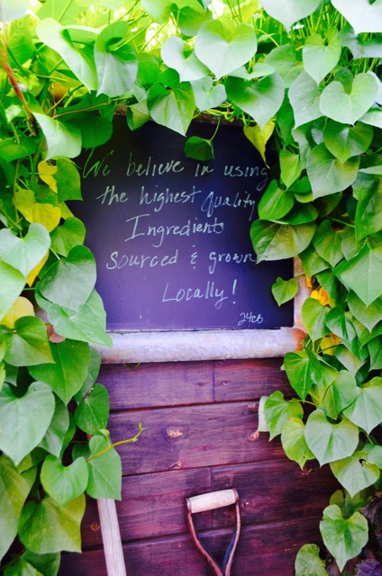 We believe in using
the highest Quality
Ingredients
sourced & grown
Locally!
24cb